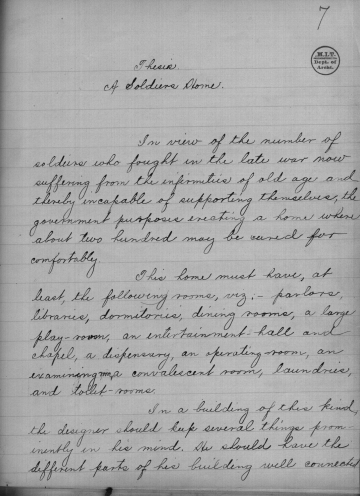 7
M.I.T.
Dept. of
Archt.
Thesis
A Soldiers Home.
In view of the number of
soldiers who fought in the late war now
suffering from the infirmities of old age and
thereby incapable of supporting themselves, the
government purposes erecting a home where
about two hundred may be cared for
comfortably.
This home must have, at
least, the following rooms, viz; - parlors,
libraries, dormitories, dining rooms, a large
play-room, an entertainment-hall and
chapel, a dispensary, an operating-room, an
examining a convalescent room, laundries,
and toilet-rooms.
In a building of this kind,
the designer should keep several things prom-
inently in his mind. He should have the
different parts of his building well connected